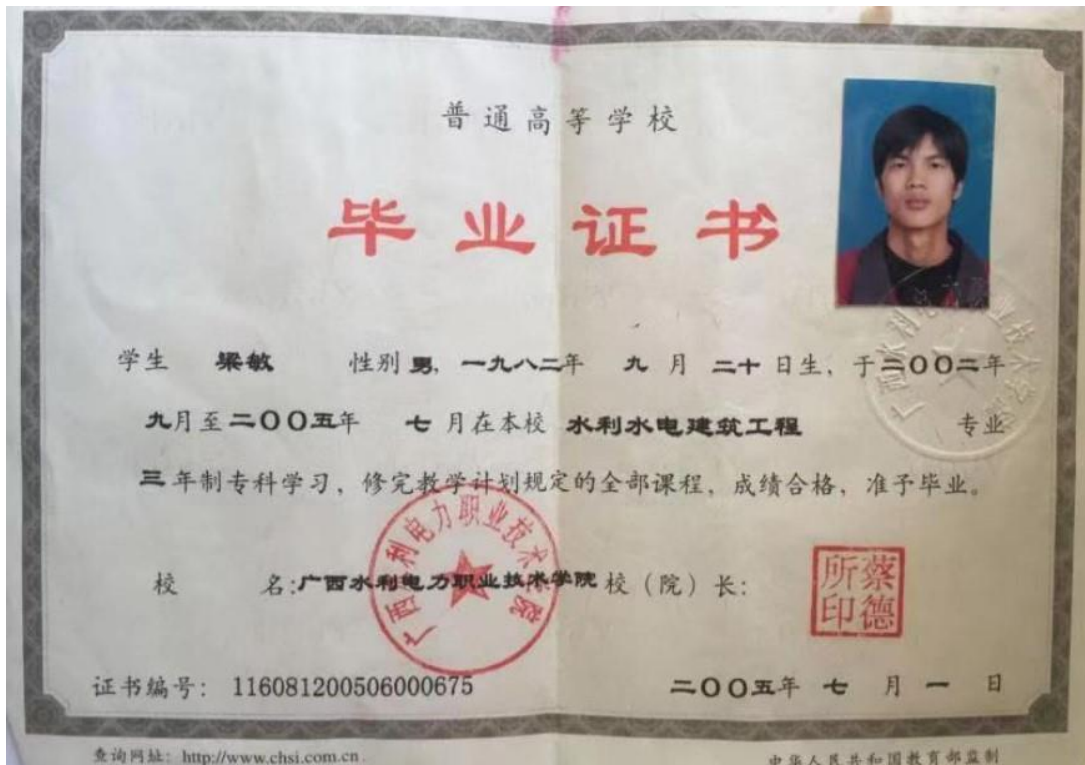 普通高等学校
毕业证书
学生 梁敏 性别 男, 一九八二年 九 月 二十 日生, 于二〇〇二年
九月至二〇〇五年 七 月在本校 水利水电建筑工程 专业
三年制专科学习, 修完教学计划规定的全部课程, 成绩合格, 准予毕业。
校 名:广西水利电力职业技术学院 校(院)长:
蔡德所印
广西水利电力职业技术学院
证书编号: 116081200506000675
二〇〇五年 七 月 一 日
查询网址: http://www.chsi.com.cn.
中华人民共和国教育部监制